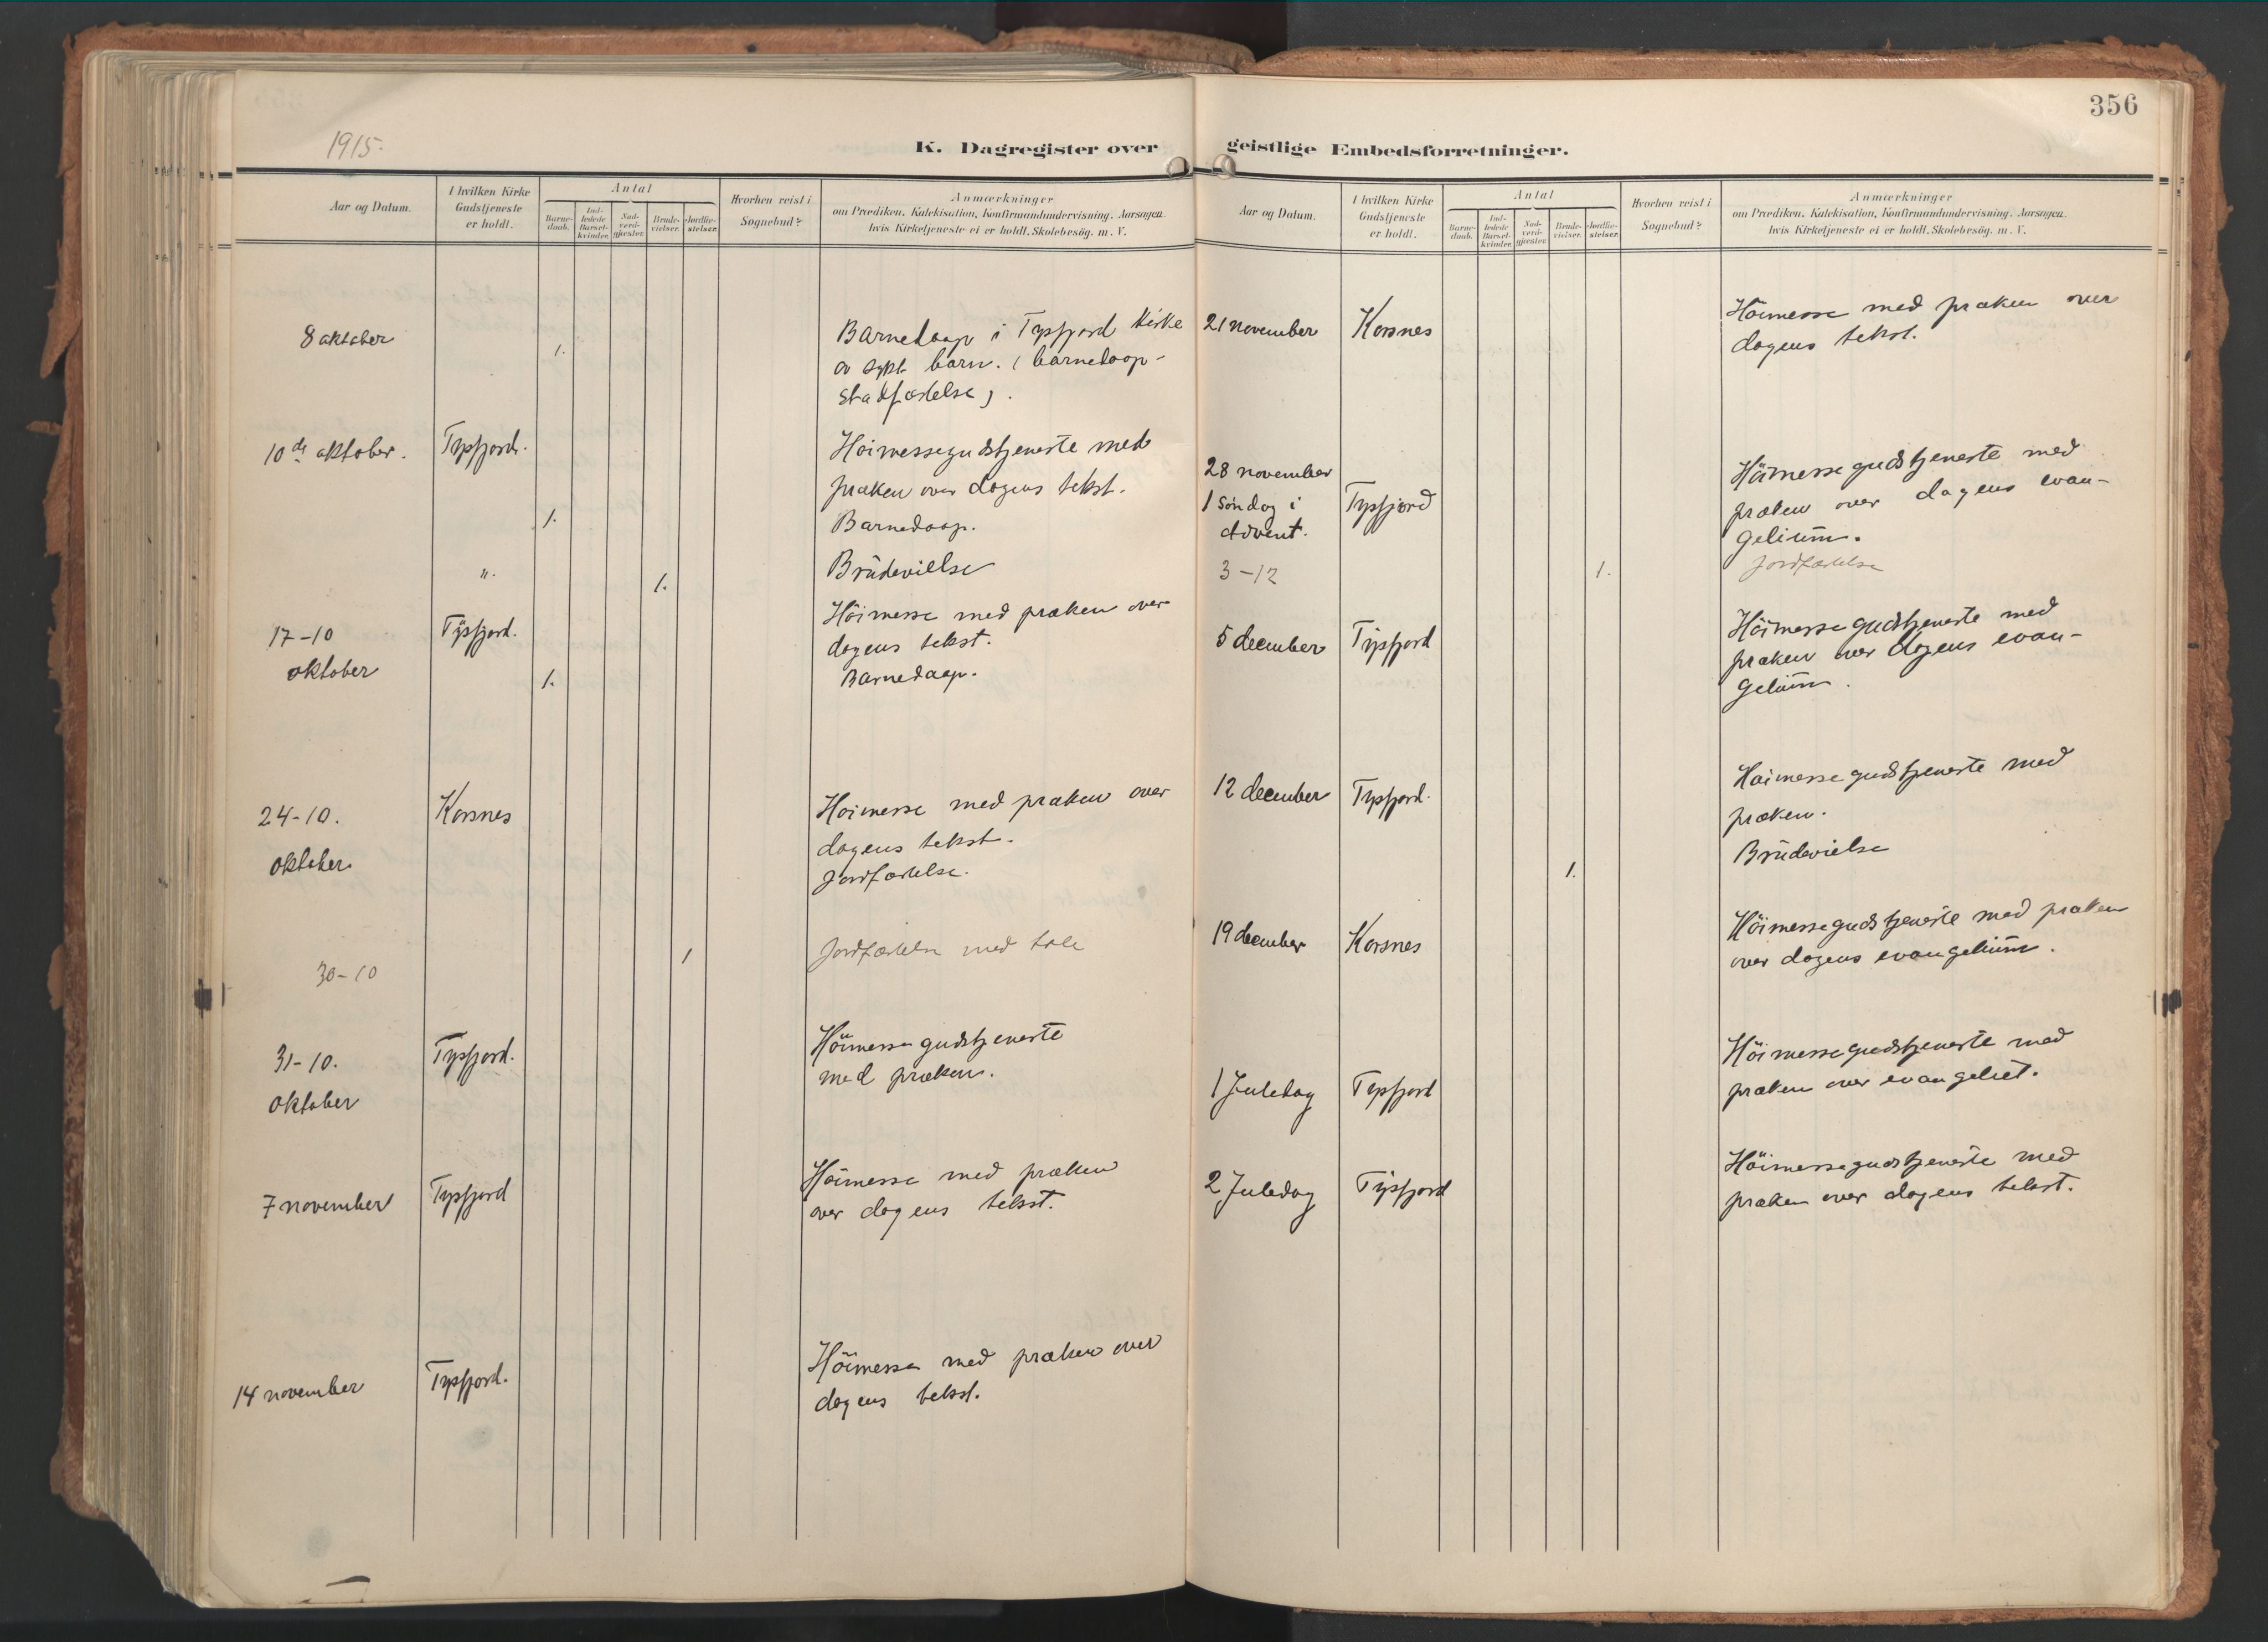 356
1915.
K. Dagregister over geistlige Embedsforretninger.
Aar og Datum.
I hvilken Kirke
Gudstjeneste
er holdt.
Antal
Barne-
daab.
Ind-
ledede
Barsel-
kvinder.
Nad-
verd-
gjæster.
Brude-
vielser.
Jordfæ-
stelser.
Hvorhen reist i
Sognebud?
Anmærkninger
om Prædiken, Katekisation, Konfirmandundervisning, Aarsagen
hvis Kirketjeneste ei er holdt, Skolebesög. m. V.
8 oktober
1.
Barnedaap i Tysfjord kirke
av sykt barn. (barnedaap-
stadfæstelse).
10de oktober.
Tysfjord.
Høimessegudstjeneste med
præken over dagens tekst.
1.
Barnedaap.
"
1.
Brudevielse
17-10
Tysfjord.
Høimesse med præken over
dagens tekst.
oktober
1.
Barnedaap.
24-10.
Korsnes
Høimesse med præken over
dagens tekst.
oktober
Jordfæstelse.
30-10
1
Jordfæstelse med tale
31-10.
Tysfjord.
Høimesse gudstjeneste
med præken.
oktober
7 november
Tysfjord
Høimesse med præken
over dagens tekst.
14 november
Tysfjord.
Høimesse med præken over
dagens tekst.
Aar og Datum.
I hvilken Kirke
Gudstjeneste
er holdt.
Antal
Barne-
daab.
Ind-
ledede
Barsel-
kvinder.
Nad-
verd-
gjæster.
Brude-
vielser.
Jordfæ-
stelser.
Hvorhen reist i
Sognebud?
Anmærkninger
om Prædiken, Katekisation, Konfirmandundervisning, Aarsagen
hvis Kirketjeneste ei er holdt, Skolebesög. m. V.
21 november
Korsnes
Høimesse med præken over
dagens tekst.
28 november
1 søndag i
Advent.
Tysfjord
Høimessegudstjeneste med
præken over dagens evan-
gelium.
3-12
1.
Jordfæstelse
5 december
Tysfjord
Høimessegudstjeneste med
præken over dagens evan-
gelium.
12 december
Tysfjord.
Høimessegudstjeneste med
præken.
1.
Brudevielse
19 december
Korsnes
Høimessegudstjeneste med præken
over dagens evangelium.
1 Juledag
Tysfjord
Høimessegudstjeneste med
præken over evangeliet.
2 Juledag
Tysfjord
Høimessegudstjeneste med
præken over dagens tekst.